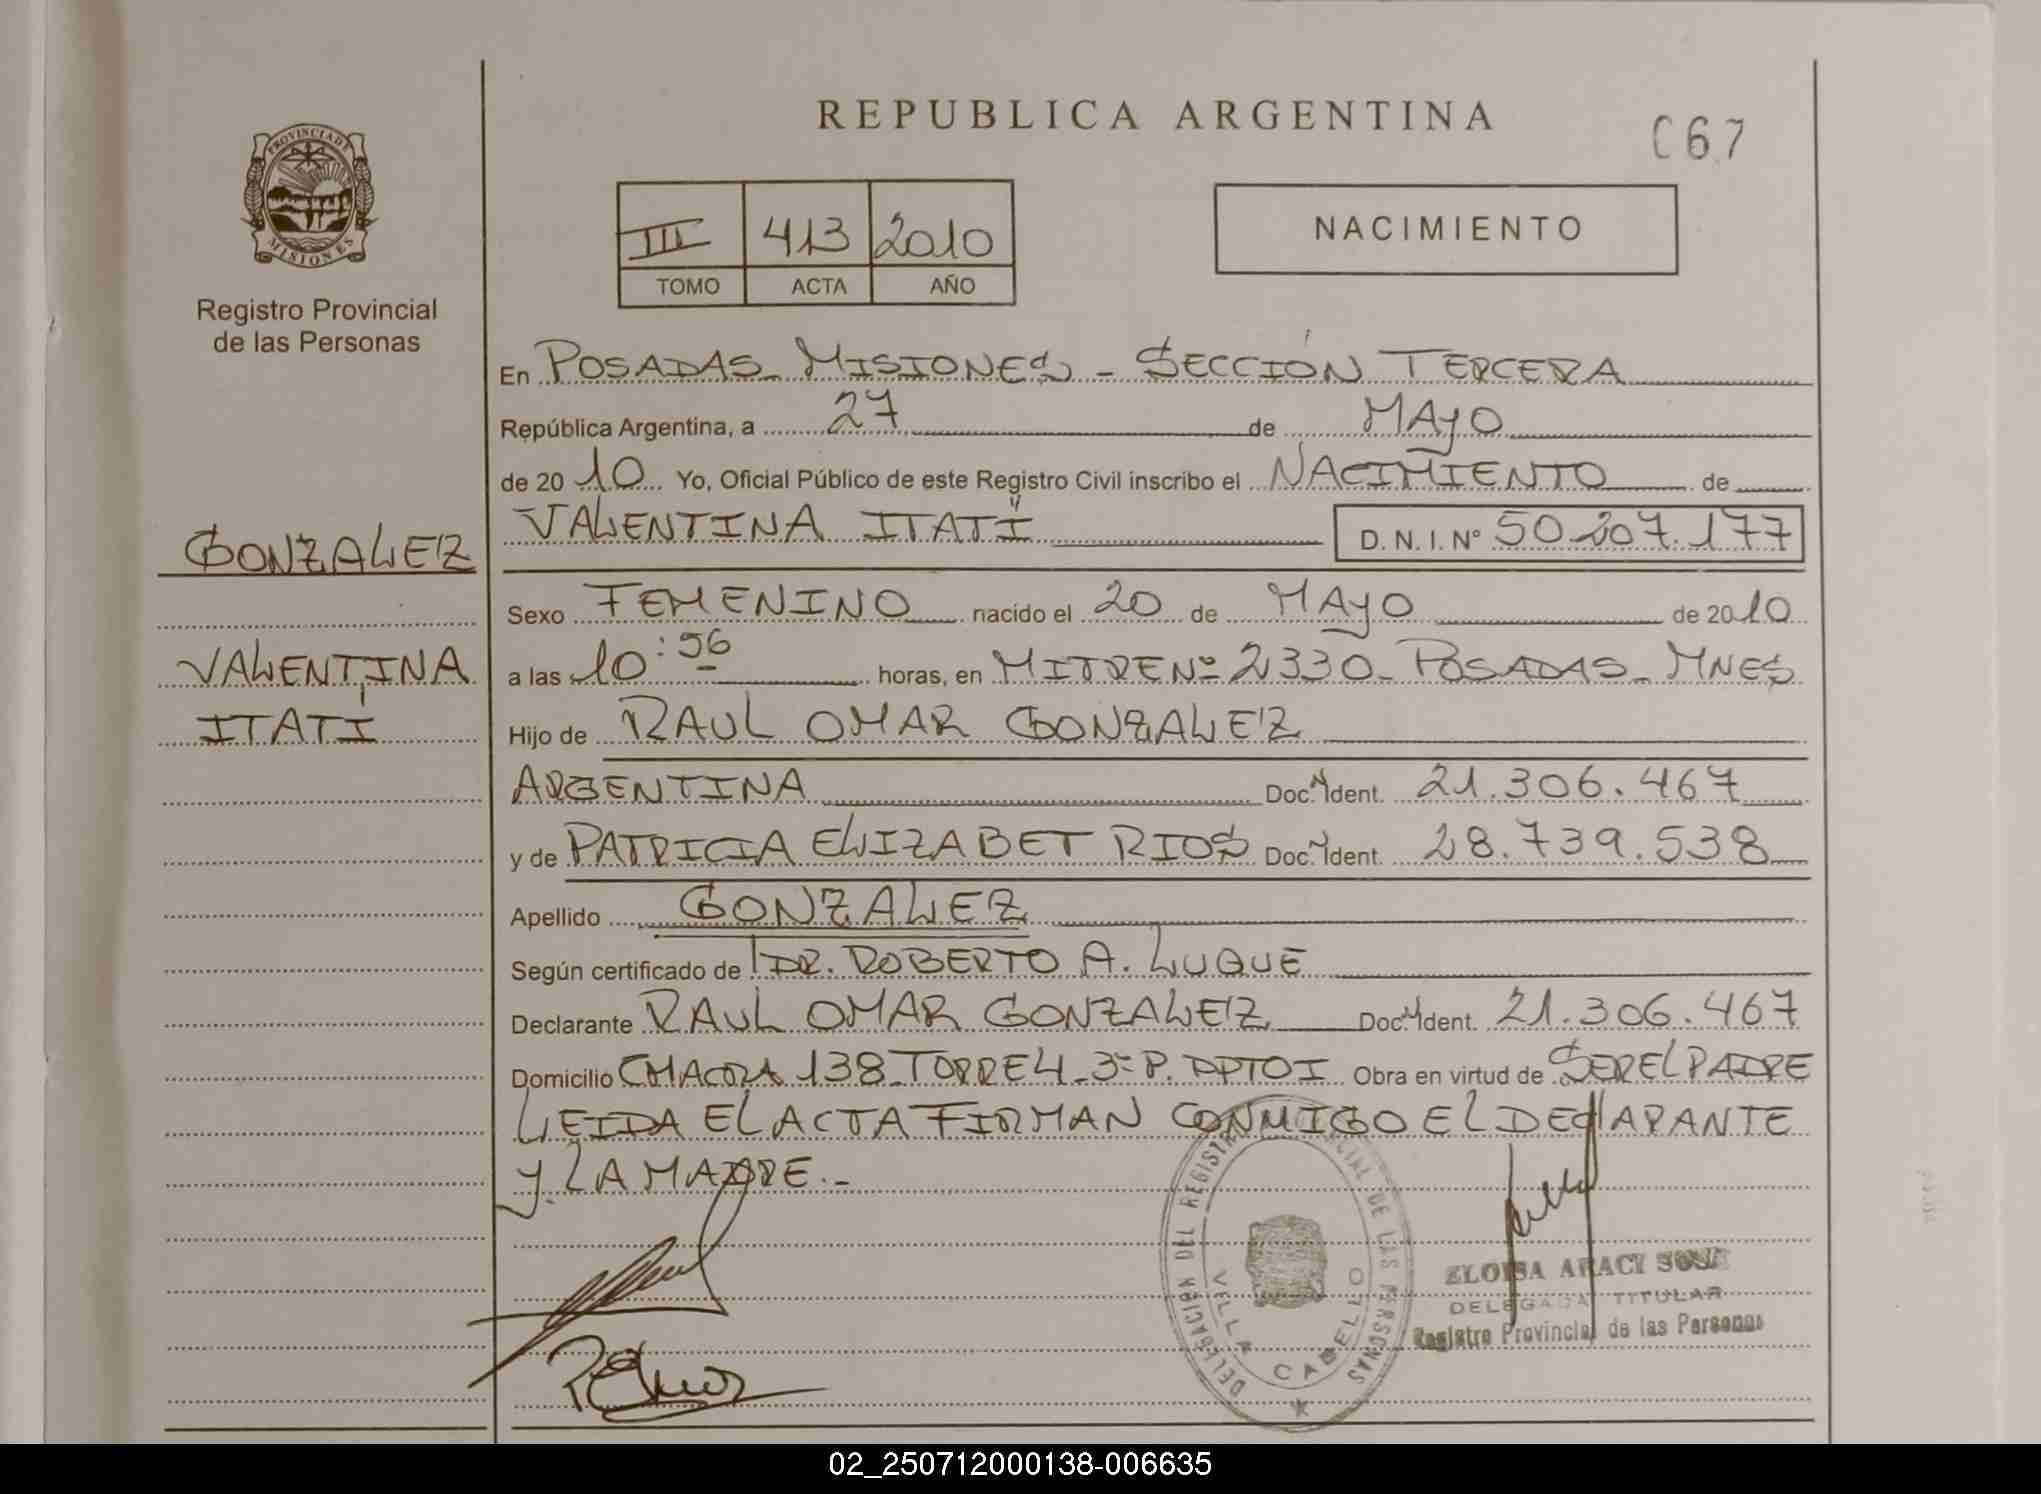 REPUBLICA ARGENTINA
C67
PROVINCIA DE
MISIONES
Registro Provincial
de las Personas
III 413 2010
TOMO ACTA AÑO
NACIMIENTO
En POSADAS - MISIONES - SECCIÓN TERCERA
República Argentina, a 27 de MAYO
de 2010 Yo, Oficial Público de este Registro Civil inscribo el NACIMIENTO de
VALENTINA ITATÍ D.N.I. Nº 50.207.177
GONZALEZ
Sexo FEMENINO nacido el 20 de MAYO de 2010
VALENTINA
a las 10:56 horas, en MITRE Nº 2330 - POSADAS - MNES
ITATÍ
Hijo de RAUL OMAR GONZALEZ
ARGENTINA Doc. Ident. 21.306.467
y de PATRICIA ELIZABET RIOS Doc. Ident. 28.739.538
Apellido GONZALEZ
Según certificado de DR. ROBERTO A. LUQUE
Declarante RAUL OMAR GONZALEZ Doc. Ident. 21.306.467
Domicilio CHACRA 138 - TORRE 4 - 3º P. DPTO I Obra en virtud de SER EL PADRE
LEIDA EL ACTA FIRMAN CONMIGO EL DECLARANTE
Y LA MADRE.-
DELEGACION DEL REGISTRO PROVINCIAL DE LAS PERSONAS
VILLA CABELLO
ELOISA ARACI SOSA
DELEGADA TITULAR
Registro Provincial de las Personas
02_250712000138-006635